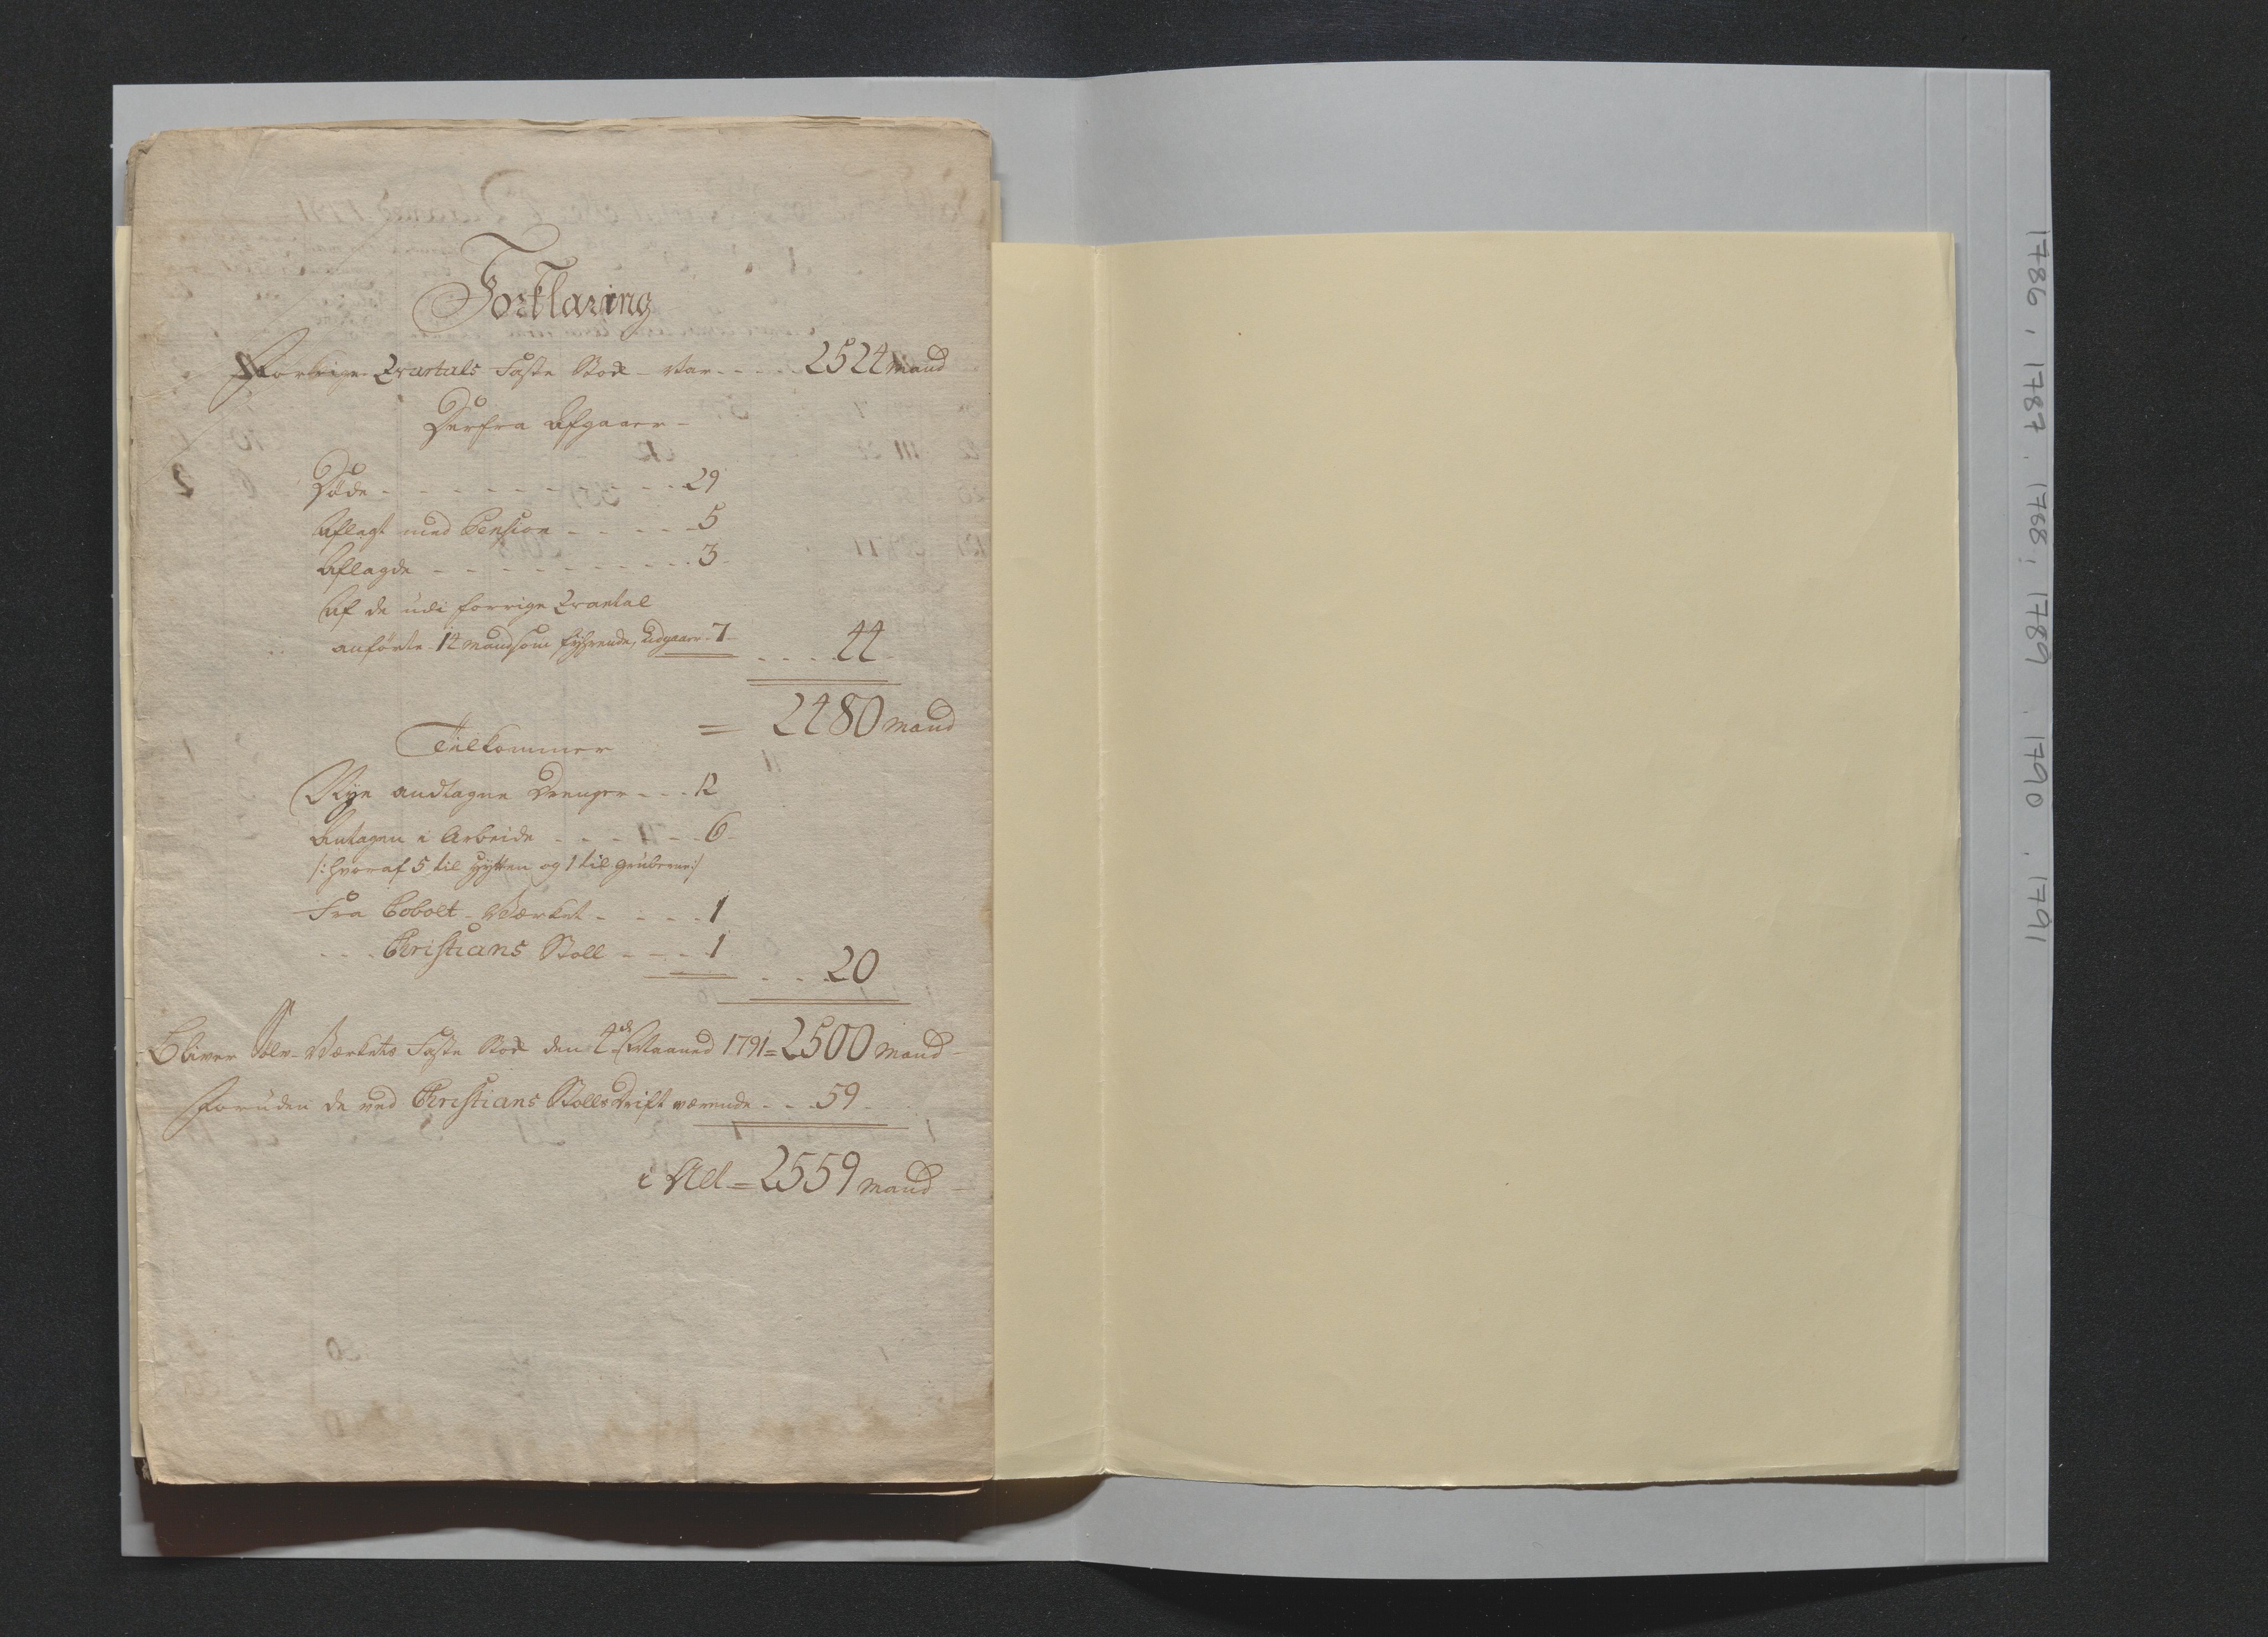 Forklaring
Forrige Qvartals Faste Stok var 2524 mand
Derfra Afgaaer
Døde 29
Aflagt med Pension 5
Aflagde 3
Af de udi forrige Qvartal
anførte 14 mand som feyrende, Udgaaer 7
44
= 2480 mand
Tilkommer
Nye andtagne Drenger 12
Antagen i Arbeide 6
/: hvoraf 5 til Hytten og 1 til Gruberne :/
Fra Cobolt-Værket 1
Christians Stoll 1
20
Bliver Sølv-Værkets Faste Stok den 4de Maaned 1791 = 2500 mand
foruden de ved Christians Stolls Drift værende 59
i Alt = 2559 mand
1786, 1787. 1788, 1789. 1790. 1791